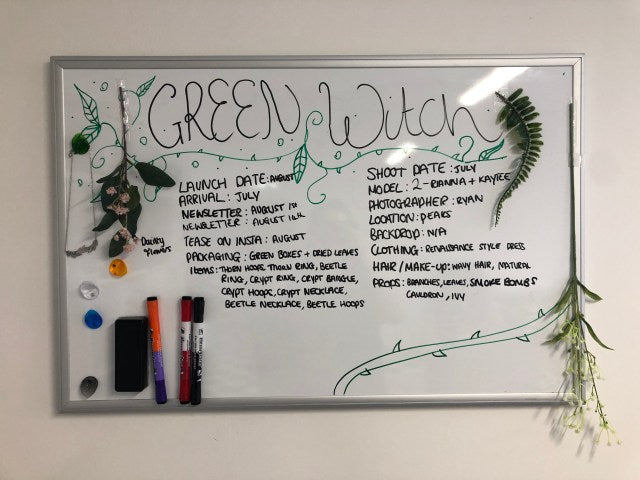 GREEN Witch
LAUNCH DATE: AUGUST
ARRIVAL: JULY
NEWSLETTER: AUGUST 1ST
NEWSLETTER: AUGUST 16th
TEASE ON INSTA: AUGUST
PACKAGING: GREEN BOXES + DRIED LEAVES
Items: THORN HOOPS, THORN RING, BEETLE
RING, CRYPT RING, CRYPT BANGLE,
CRYPT HOOPS, CRYPT NECKLACE,
BEETLE NECKLACE, BEETLE HOOPS
Dainty
Flowers
SHOOT DATE: JULY
MODEL: 2 - RIANNA + KAYLEE
PHOTOGRAPHER: RYAN
LOCATION: PEAKS
BACKDROP: N/A
CLOTHING: RENAISSANCE STYLE DRESS
HAIR/MAKE-UP: WAVY HAIR, NATURAL
PROPS: BRANCHES, LEAVES, SMOKE BOMBS
CAULDRON, IVY